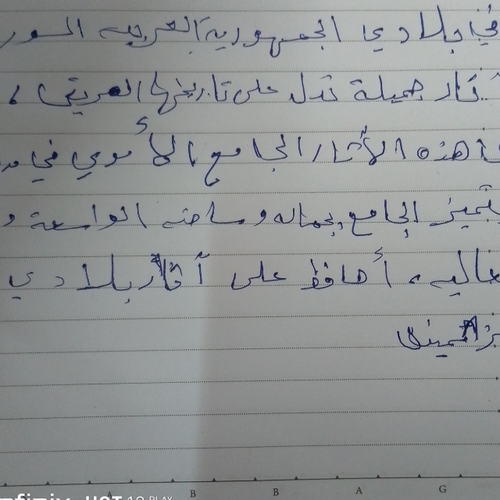 في بلادي الجمهورية العربيه السور
آثار جميلة تدل على تاريخها العريق،
هذه الأثار الجامع الأموي في
يتميز الجامع بجماله وساحته الواسعة و
عاليه، أحافظ على آثار بلادي
B B A G